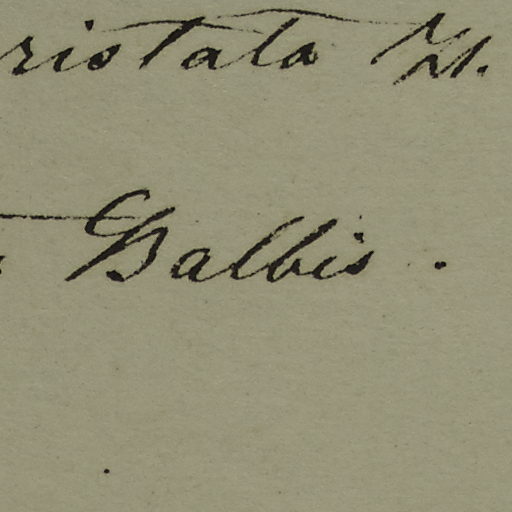 ristata
Balbis.